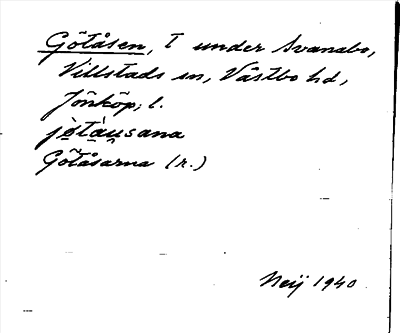 Götåsen, T under Svanabo,
Villstads sn, Västbo hd,
Jönköp. l.
jö̀tàu̯sana
Götåsarna (r.)
Neij 1940